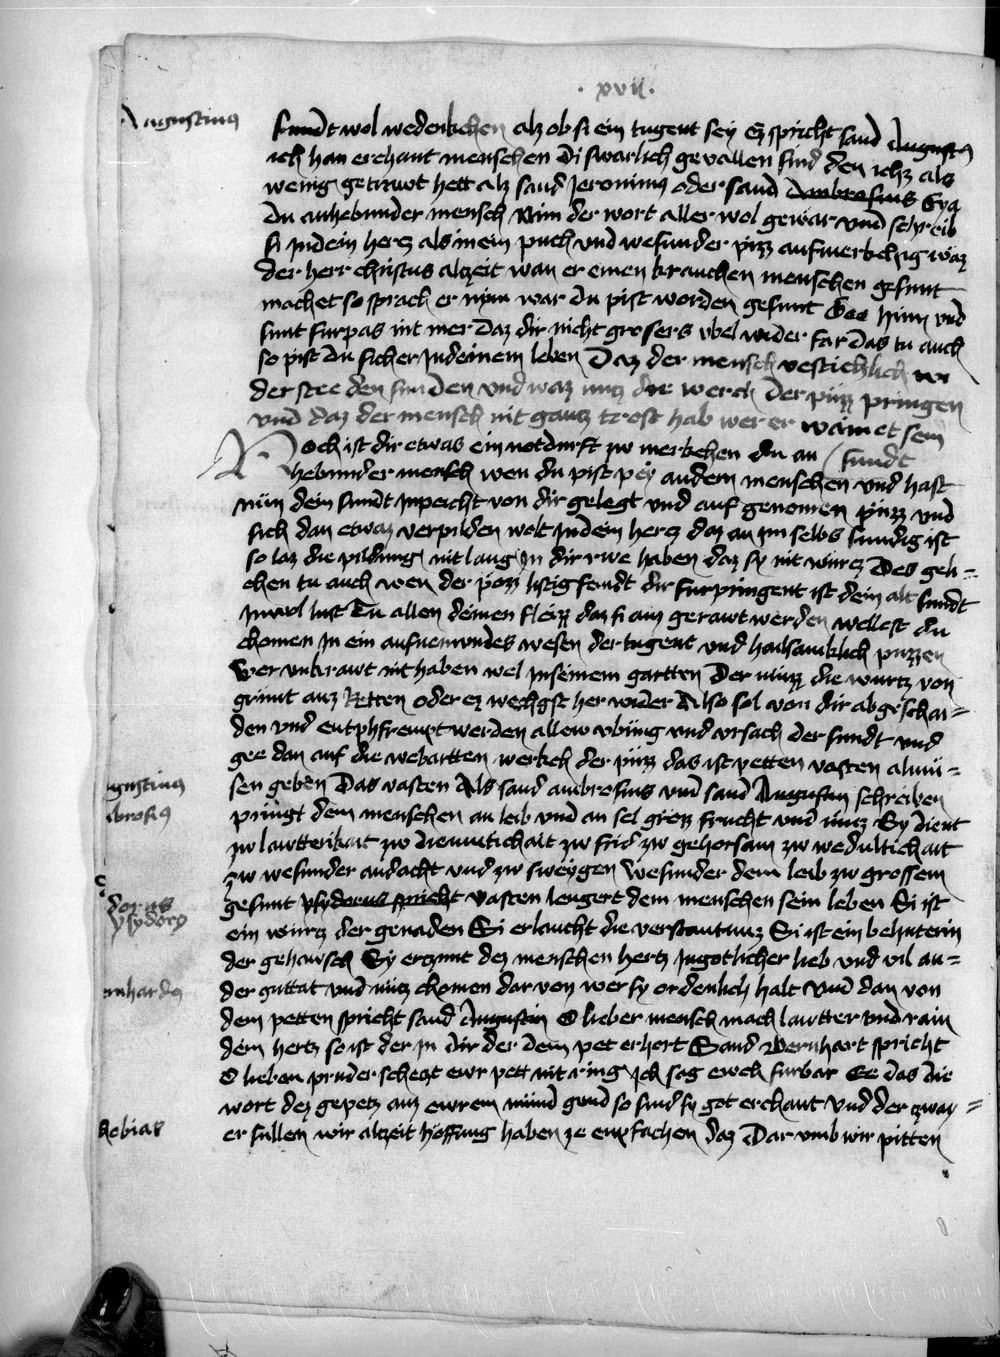 · xvii ·
Augustinus
sundt wol wedenkchen alz ob si ein tugent sey Ez spricht sand Augustus
ich han erchant menschen di swarlich gevallen sind den ichz als
wenig getrawt hett alz sand Jeronimus oder sand Ambrosius Eya
du anhebunder mensch Nim der wort aller wol gewar vnd schreib
si Jndein hercz als in ein puch vnd wesunder pizz aufmerkchig waz
der herr christus alczeit wan er einen kranchen menschen gesunt
machet so sprach er nym war du pist worden gesunt Gee hinn vnd
sunt furpas nit mer Daz dir nicht grosers vbel wider far Das tu auch
so pist du sicher Jndeinem leben Daz der mensch vestichlich wi
der stee den sunden vnd waz nucz die werch der puzz pringen
vnd daz der mensch nit gancz trost hab wer er wainet sein
Noch ist dir etwas ein notdurft zw merkchen du an sundt
hebunder mensch wen du pist pey andern menschen vnd hast
nun dein sundt Jnpeicht von dir gelegt vnd auf genomen puzz vnd
sich dan etwaz verpilden wolt Jndein hercz daz an im selbs sundig ist
so laz die pildung nit lang Jn dir rwe haben daz sy nit wurcz Des gelei=
chen tu auch wen der pozz listig feindt dir furpringent ist dein alt sundt
Jnwol lust Tu allen deinen fleizz daz si aus gerawt werden wellest du
chomen Jn ein aufnemundes wesen der tugent vnd hailsamklich puzzen
Wer vnkrawt nit haben wel Jnseinem gartten Der muzz die wurcz von
grunt auz Ketten oder ez wechgst her wider Also sol von dir abgeschai=
den vnd entphfrempt werden allew vbung vnd vrsach der sundt vnd
gee dan auf die webartten werkch der puzz das ist petten vasten almu=
sen geben Das vasten Als sand ambrosius vnd sand Augustin schreiben
gustinus
brosius
pringt dem menschen an leib vnd an sel grozz frucht vnd nucz Sy dient
zw lawtterikait zw diemutichait zw frid zw gehorsam zw wedultichait
zw wesunder andacht vnd zw sweygen Wesunder dem leib zw grossem
gesunt ysydorus spricht vasten lengert dem menschen sein leben Si ist
dorus
ysydorus
ein wurcz der genaden Si erlaucht die verstantnuz Si ist ein behuterin
der gehawsch Sy erczunt dez menschen hertz Jngotlicher lieb vnd vil an=
der guttat vnd nucz chomen dar von wer sy ordenlich halt Vnd dan von
rnhardus
dem petten spricht sand Augustin O lieber mensch mach lawtter vnd rain
dein hertz so ist der Jn dir der dein pet erhort Sand Bernhart spricht
O lieben pruder scheczt ewr pett nit ring Jch sag ewch furbar Ee das die
wort dez gepetz auz ewrem mund gend so sind sy got erchant Vnd der zway=
er sullen wir alczeit hoffung haben ze enpfachen daz Dar vmb wir pitten